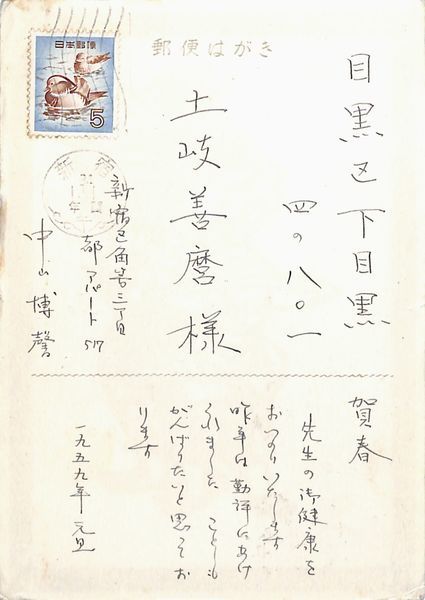 郵便はがき
日本郵便
5
目黒区下目黒
四の八〇一
土岐善麿様
新宿
新宿区角筈三丁目
都アパート517
中山博馨
賀春
先生の御健康を
おいのりいたします
昨年は勤評にあけ
くれました ことしも
がんばりたいと思ってお
ります
一九五九年 元旦